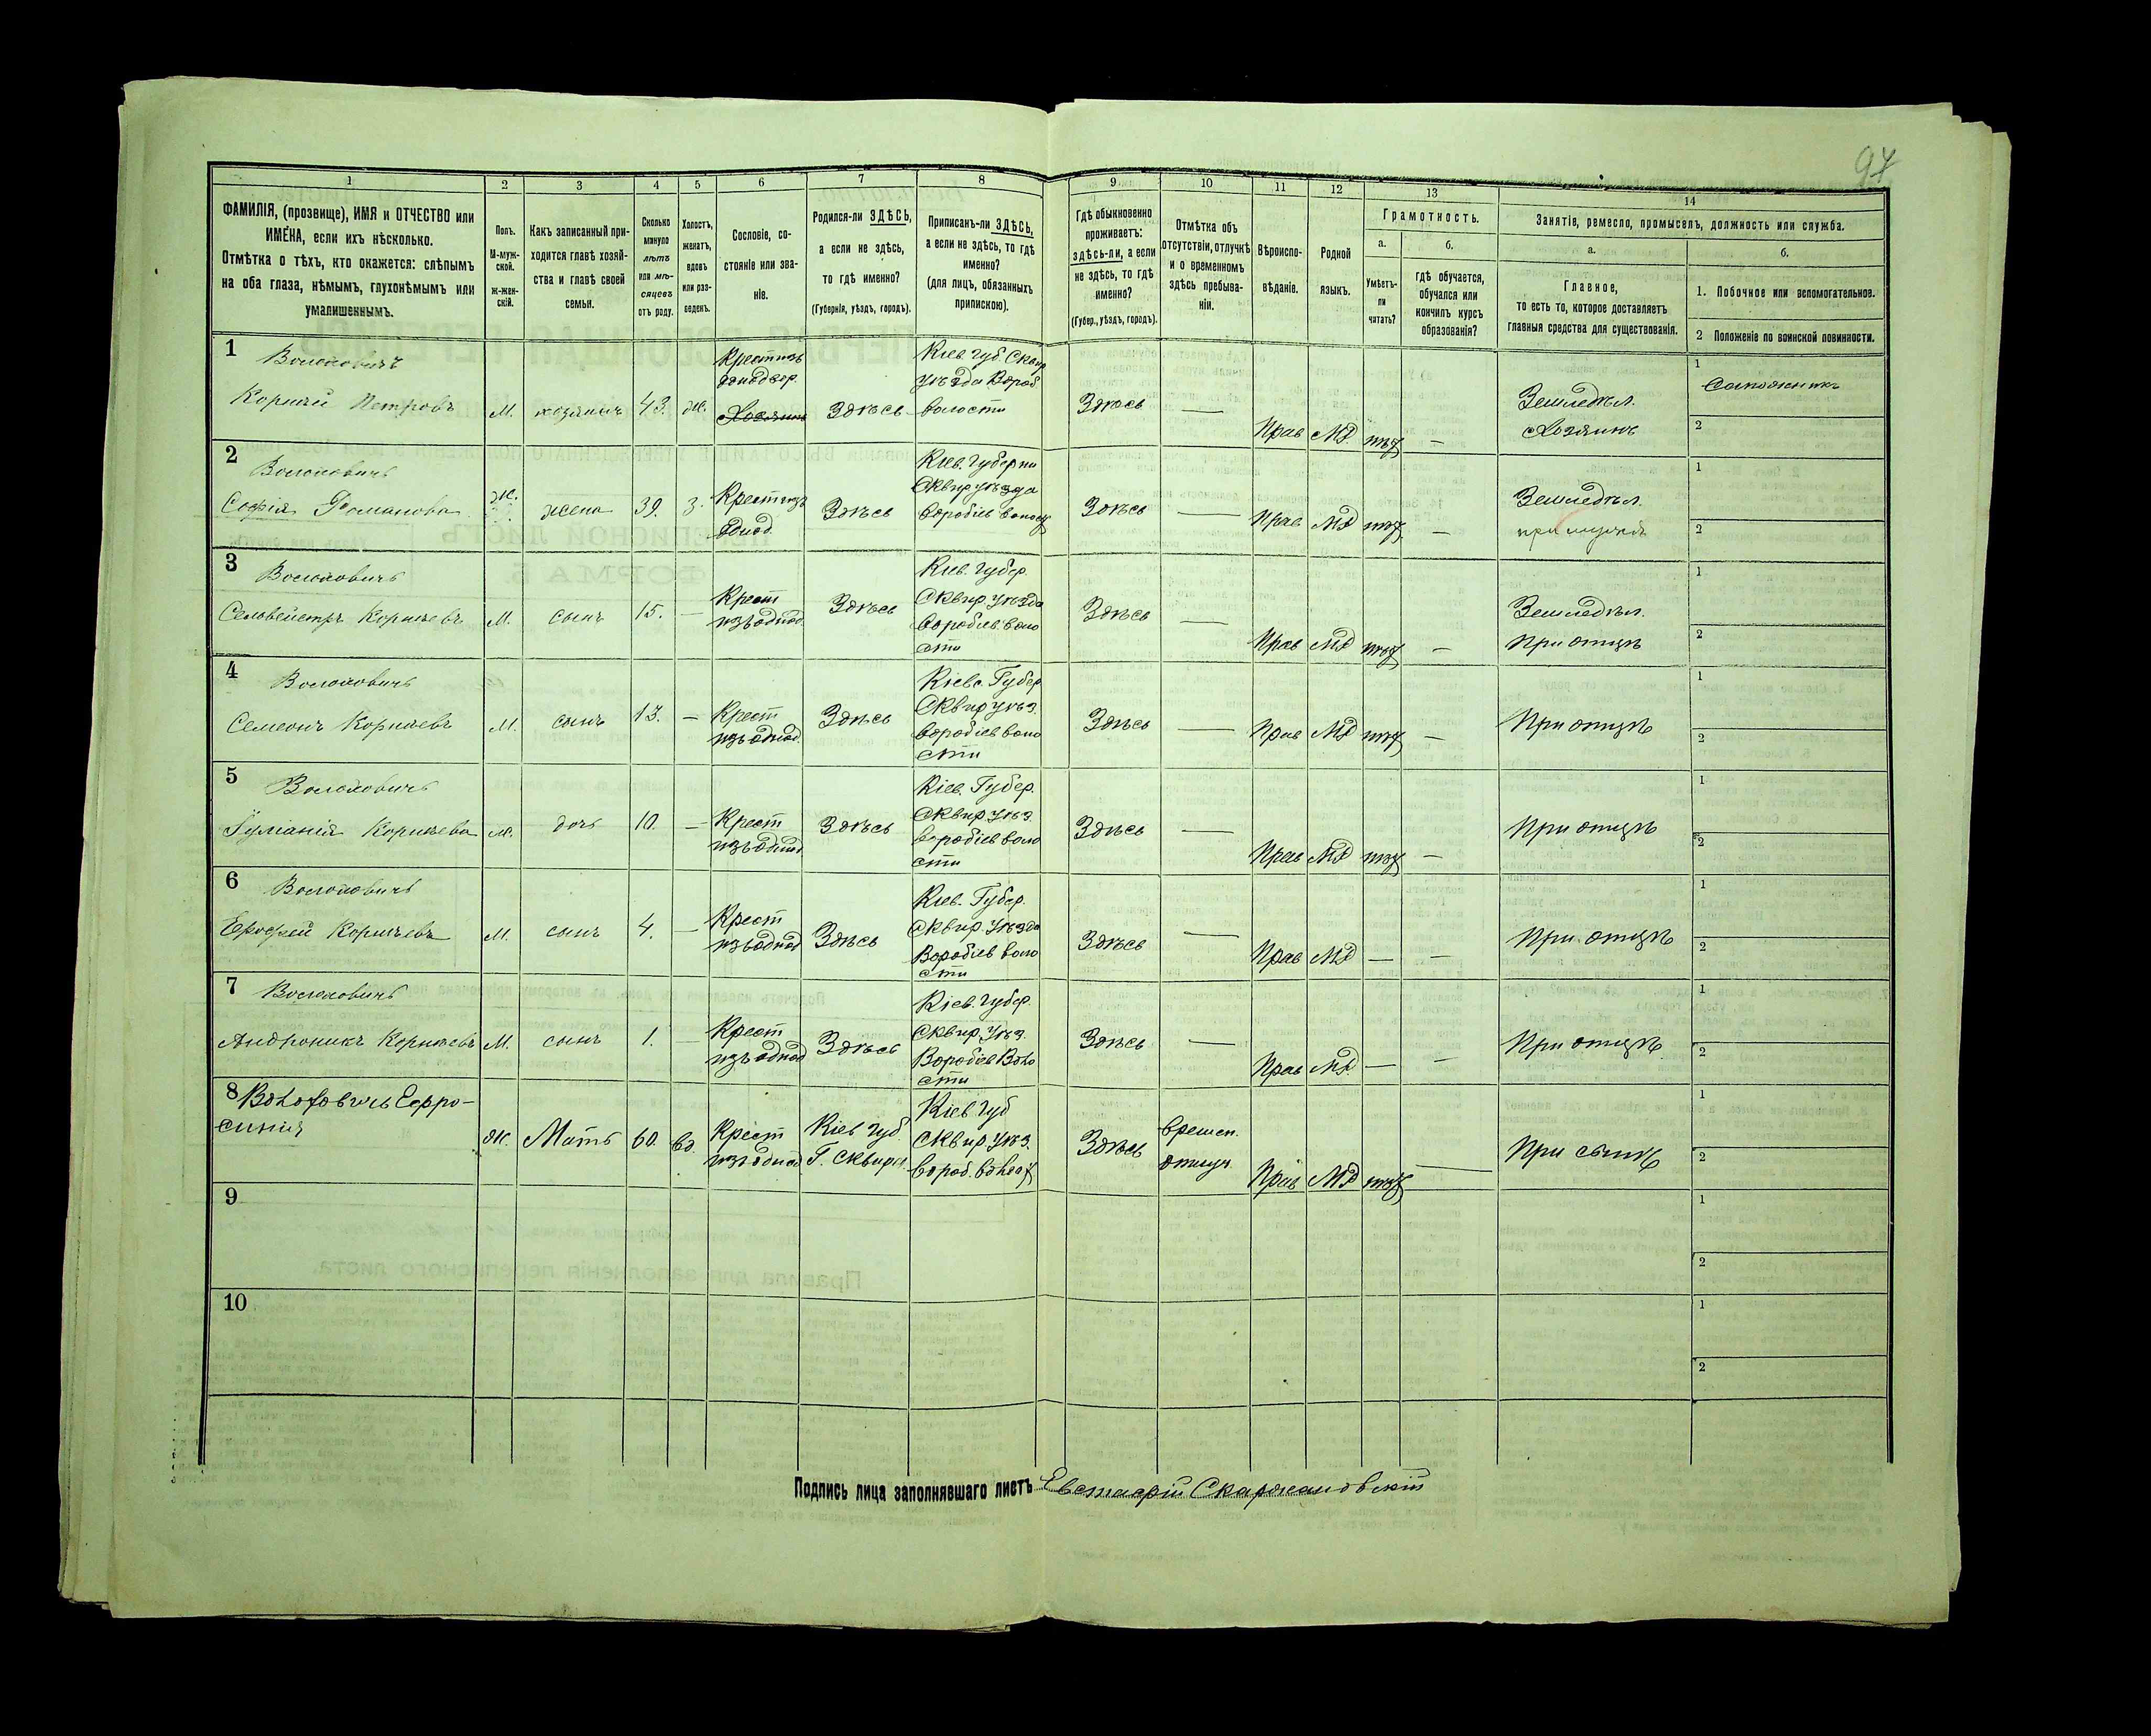 97
1 2 3 4 5 6 7 8 9 10 11 12 13 14
ФАМИЛІЯ, (прозвище), ИМЯ и ОТЧЕСТВО или
ИМЕНА, если ихъ нѣсколько.
Отмѣтка о тѣхъ, кто окажется: слѣпымъ
на оба глаза, нѣмымъ, глухонѣмымъ или
умалишеннымъ.
Полъ.
М-муж-
ской.
ж-жен-
скій.
Какъ записанный при-
ходится главѣ хозяй-
ства и главѣ своей
семьи.
Сколько
минуло
лѣтъ
или мѣ-
сяцевъ
отъ роду.
Холостъ,
женатъ,
вдовъ
или раз-
веденъ.
Сословіе, со-
стояніе или зва-
ніе.
Родился-ли ЗДѢСЬ,
а если не здѣсь,
то гдѣ именно?
(Губернія, уѣздъ, городъ).
Приписанъ-ли ЗДѢСЬ,
а если не здѣсь, то гдѣ
именно?
(для лицъ, обязанныхъ
припискою).
Гдѣ обыкновенно
проживаетъ:
здѣсь-ли, а если
не здѣсь, то гдѣ
именно?
(Губер., уѣздъ, городъ).
Отмѣтка объ
отсутствіи, отлучкѣ
и о временномъ
здѣсь пребыва-
ніи.
Вѣроиспо-
вѣданіе.
Родной
языкъ.
Грамотность.
а.
Умѣетъ-
ли
читать?
б.
гдѣ обучается,
обучался или
кончилъ курсъ
образованія?
Занятіе, ремесло, промыселъ, должность или служба.
а.
Главное,
то есть то, которое доставляетъ
главныя средства для существованія.
б.
1. Побочное или вспомогательное.
2 Положеніе по воинской повинности.
1
Волоховичъ
Корнѣй Петровъ
М.
хозяинъ
43.
ж.
Крест изъ
однодвор.
Хозяинъ
Здѣсь
Кіев. Губ. Сквир
уѣзда Вороб
волости
Здѣсь
—
Прав
МР.
нѣт
—
Земледѣл.
Хозяинъ
1
Сапожникъ
2
2
Волоховичъ
Софія Романова
Ж.
жена
39.
З.
Крест изъ
однод.
Здѣсь
Кіев. Губерни
Сквир уѣзда
Воробіев волост
Здѣсь
—
Прав
МР
нѣт
—
Земледѣл.
при мужѣ
1
2
3
Волоховичъ
Селовейстръ Корнѣевъ
М.
сынъ
15.
—
Крест
изъ однод.
Здѣсь
Кіев. Губер.
Сквир. уѣзда
Воробіев воло
сти
Здѣсь
—
Прав
МР
нѣт
—
Земледѣл.
При отцѣ
1
2
4
Волоховичъ
Семеонъ Корнѣевъ
М.
сынъ
13.
—
Крест
изъ однод.
Здѣсь
Кіевс. Губер
Сквир уѣз.
Воробіев воло
сти
Здѣсь
—
Прав
МР
нѣт
—
При отцѣ
1
2
5
Волоховичъ
Іуліанія Корнѣева
дочь
10.
—
Крест
изъ однод.
Здѣсь
Кіев. Губер.
Сквир. уѣз.
Воробіев воло
сти
Здѣсь
—
Прав
МР
нѣт
—
При отцѣ
1
2
6
Волоховичъ
Ерофей Корнѣевъ
М.
сынъ
4.
—
Крест
изъ однод
Здѣсь
Кіев. Губер.
Сквир. уѣзда
Воробіев воло
сти
Здѣсь
—
Прав
МР
—
—
При отцѣ
1
2
7
Волоховичъ
Андроникъ Корнѣевъ
М.
сынъ
1.
—
Крест
изъ однод
Здѣсь
Кіев. Губер.
Сквир. уѣз.
Воробіев Воло
сти
Здѣсь
—
Прав
МР.
—
—
При отцѣ
1
2
8 Волоховичъ Евфро-
синия
Ж.
Мать
60.
вд.
Крест
изъ однод
Кіев Губ.
Г. Сквира.
Кіев Губ
Сквир уѣз.
Вороб. волост
Здѣсь
времен.
отлуч.
Прав
МР
нѣт
—
При сынѣ
1
2
9
1
2
10
1
2
Подпись лица заполнявшаго листъ Евстафій Скаржановскій